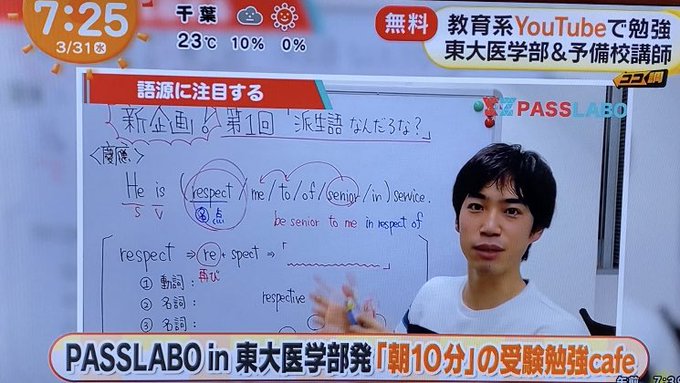 7:25
3/31水
千葉
23℃ 10% 0%
無料
教育系YouTubeで勉強
東大医学部&予備校講師
ココ調
語源に注目する
PASSLABO
新企画! 第1回「派生語 なんだろな?」
<慶應>
He is (respect/me/to/of/senior/in) service.
S V 名 点
be senior to me in respect of
respect ⇒ re + spect ⇒「 」
再び
① 動詞:
② 名詞:
③ 名詞:
respective
PASSLABO in 東大医学部発「朝10分」の受験勉強cafe